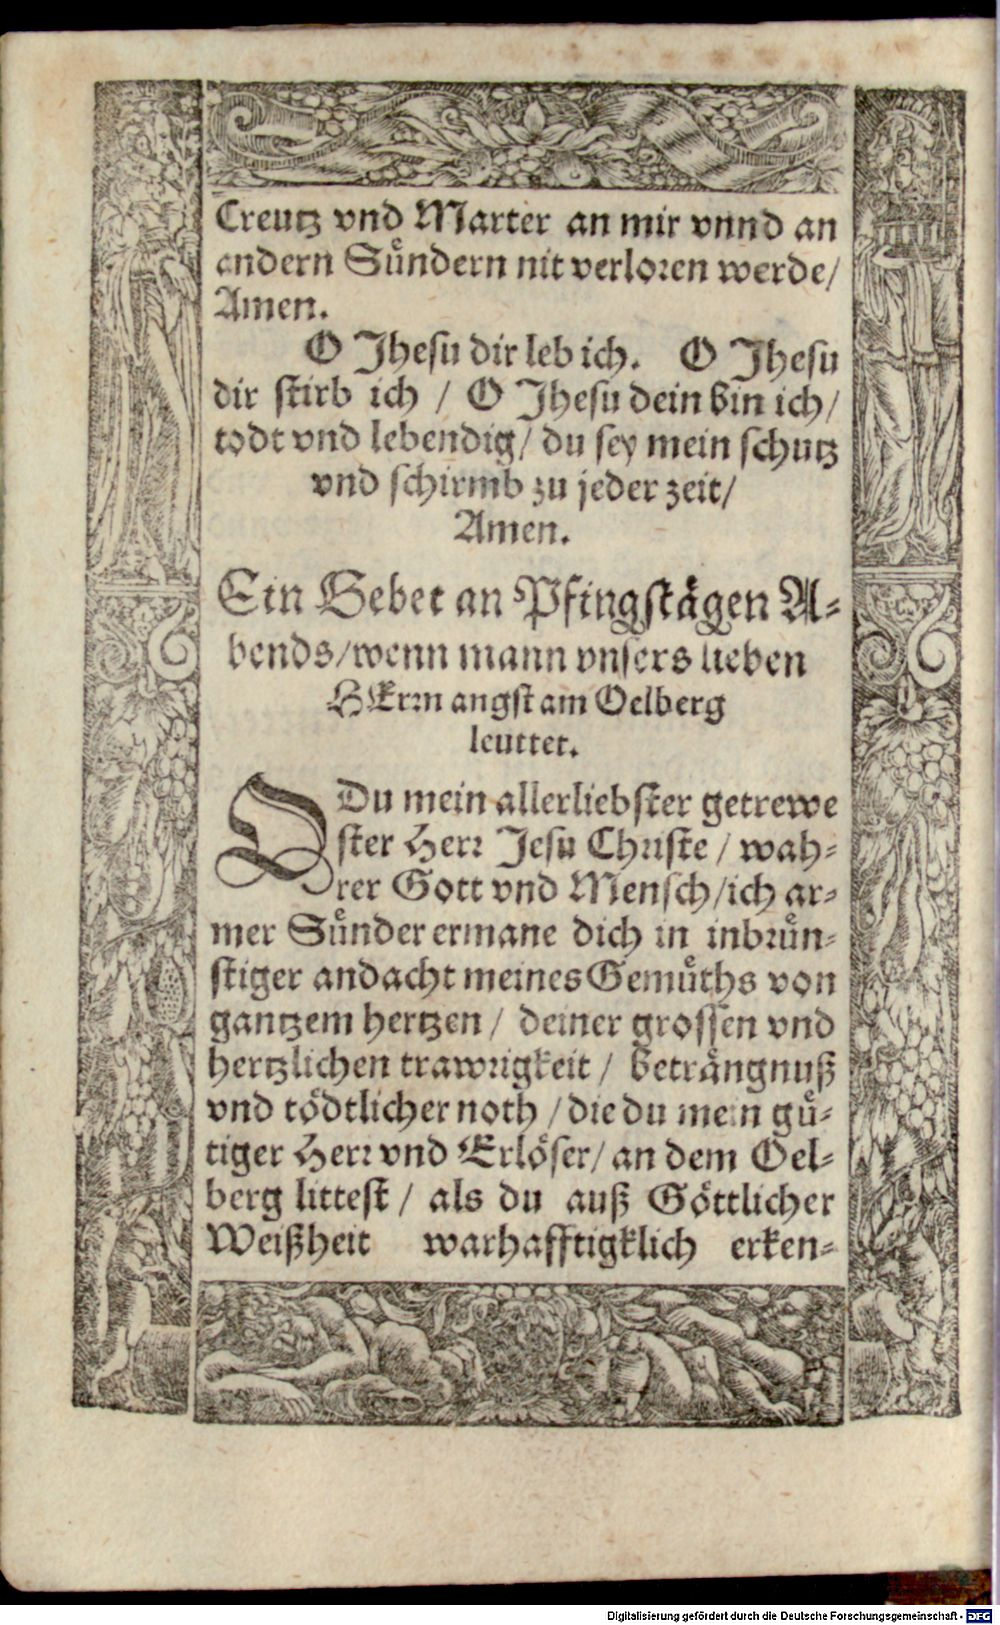 Creutz vnd Marter an mir vnnd an
andern Sündern nit verloren werde/
Amen.
O Jhesu dir leb ich. O Jhesu
dir stirb ich / O Jhesu dein bin ich/
todt vnd lebendig/ du sey mein schutz
vnd schirmb zu jeder zeit/
Amen.
Ein Gebet an Pfingstägen A-
bends/wenn mann vnsers lieben
HErrn angst am Oelberg
leuttet.
O Du mein allerliebster getrewe
ster Herr Jesu Christe / wah-
rer Gott vnd Mensch/ich ar-
mer Sünder ermane dich in inbrün-
stiger andacht meines Gemüths von
gantzem hertzen / deiner grossen vnd
hertzlichen trawrigkeit / beträngnuß
vnd tödtlicher noth / die du mein gü-
tiger Herr vnd Erlöser/ an dem Oel-
berg littest / als du auß Göttlicher
Weißheit warhafftigklich erken-
Digitalisierung gefördert durch die Deutsche Forschungsgemeinschaft - DFG